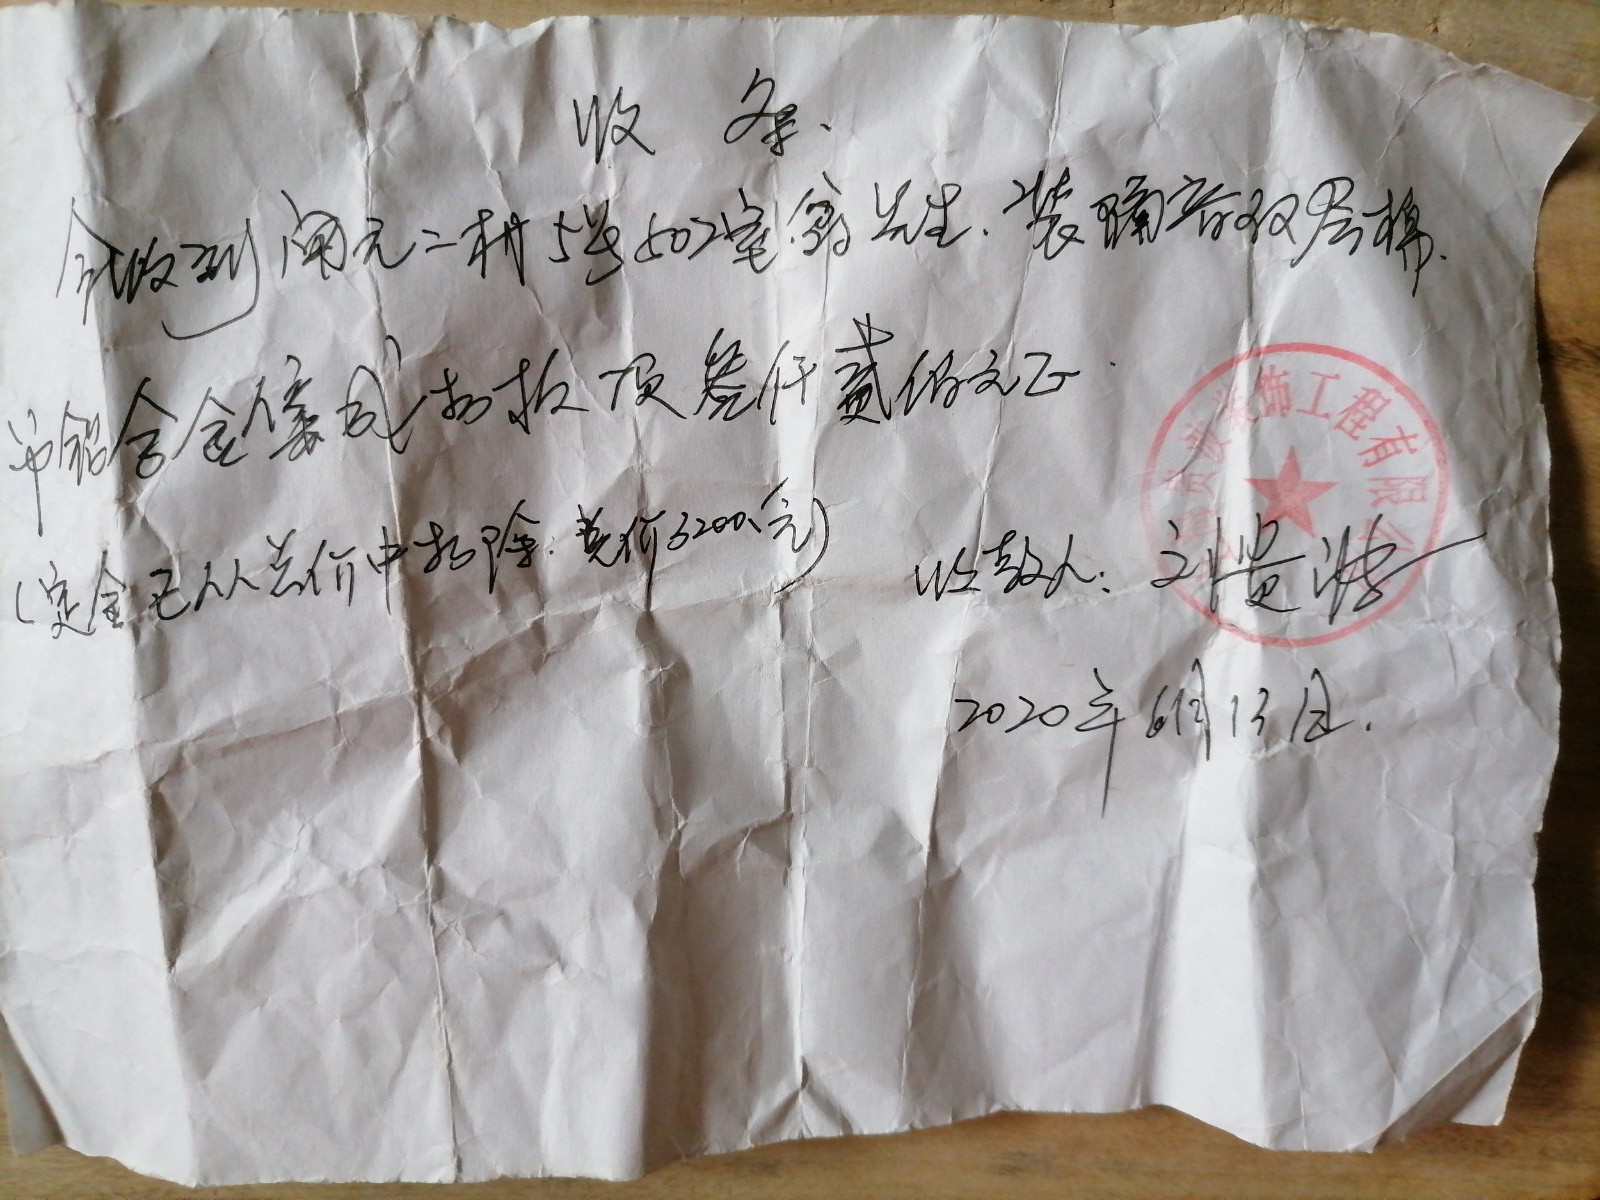 收条.
今收到闻元二村5号502室翁先生.装隔音双层棉.
单铝合金 扣板 顶叁仟贰佰元正.
(定金已从总价中扣除.总价3200.元)
收款人:刘贵
2020年6月13日.
装饰工程有限公